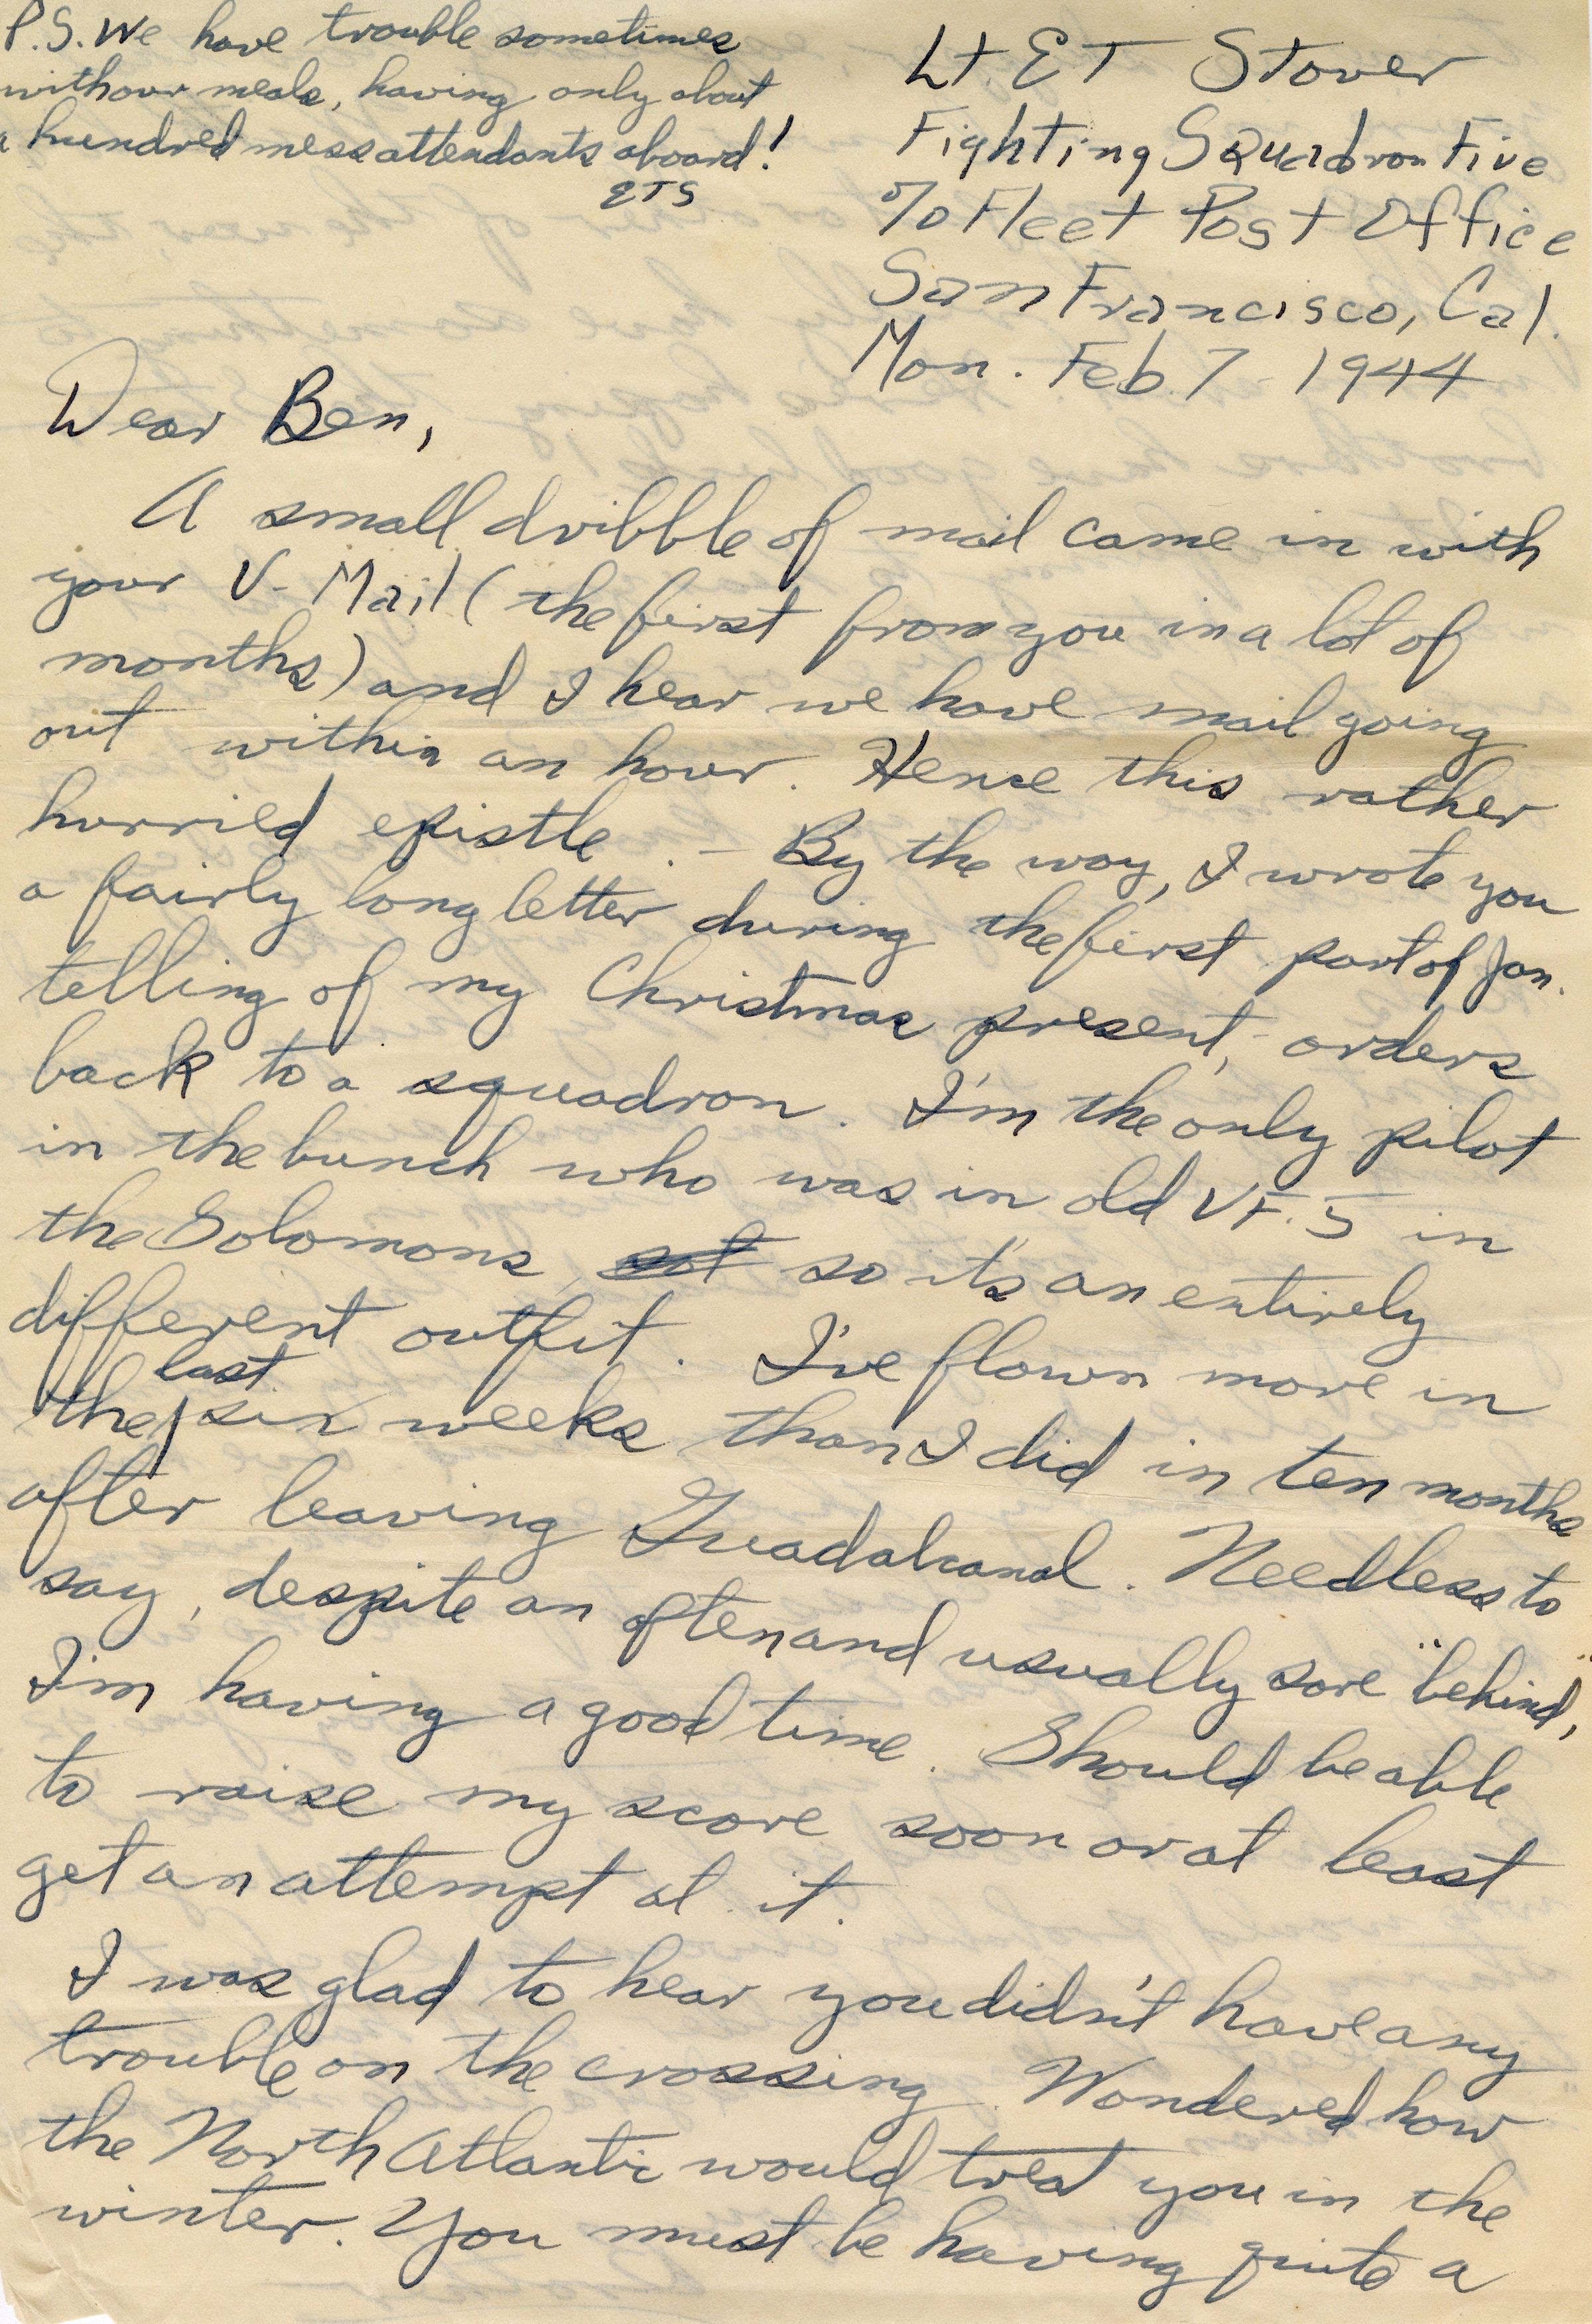 P.S. We have trouble sometimes
with our meals, having only about
a hundred mess attendants aboard!
ETS
Lt. E T Stover
Fighting Squadron Five
c/o Fleet Post Office
San Francisco, Cal.
Mon. Feb. 7 1944
Dear Ben,
A small dribble of mail came in with
your V-Mail (the first from you in a lot of
months) and I hear we have mail going
out within an hour. Hence this rather
hurried epistle. - By the way, I wrote you
a fairly long letter during the first part of Jan.
telling of my Christmas present, - orders
back to a squadron. I'm the only pilot
in the bunch who was in old VF-5 in
the Solomons, so it's an entirely
different outfit. I've flown more in
the last six weeks than I did in ten months
after leaving Guadalcanal. Needless to
say, despite an often and usually sore "behind",
I'm having a good time. Should be able
to raise my score soon or at least
get an attempt at it.
I was glad to hear you didn't have any
trouble on the crossing. Wondered how
the North Atlantic would treat you in the
winter. You must be having quite a